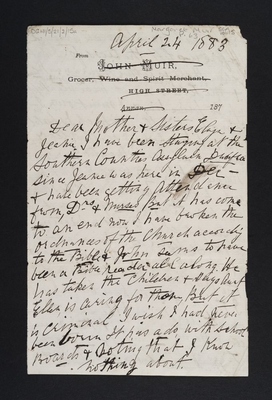 April 24 1883
From
JOHN MUIR,
Grocer, Wine and Spirit Merchant,
HIGH STREET,
Annan, 187
Dear Mother & Sisters Eliza &
Jeanie I have been staying at the
Southern Counties Asylum Dumfries
since Jeanie was here in Oct
& have been getting attendance
from Drs & Nurses but it has come
to an end now I have broken the
ordinances of the Church according
to the Bible & John seems to have
been a Bible reader all along He
has taken the Children & says Aunt
Ellen is caring for them But it
is criminal I wish I had never
been born It has ado with School
Boards & Voting that I know
nothing about.